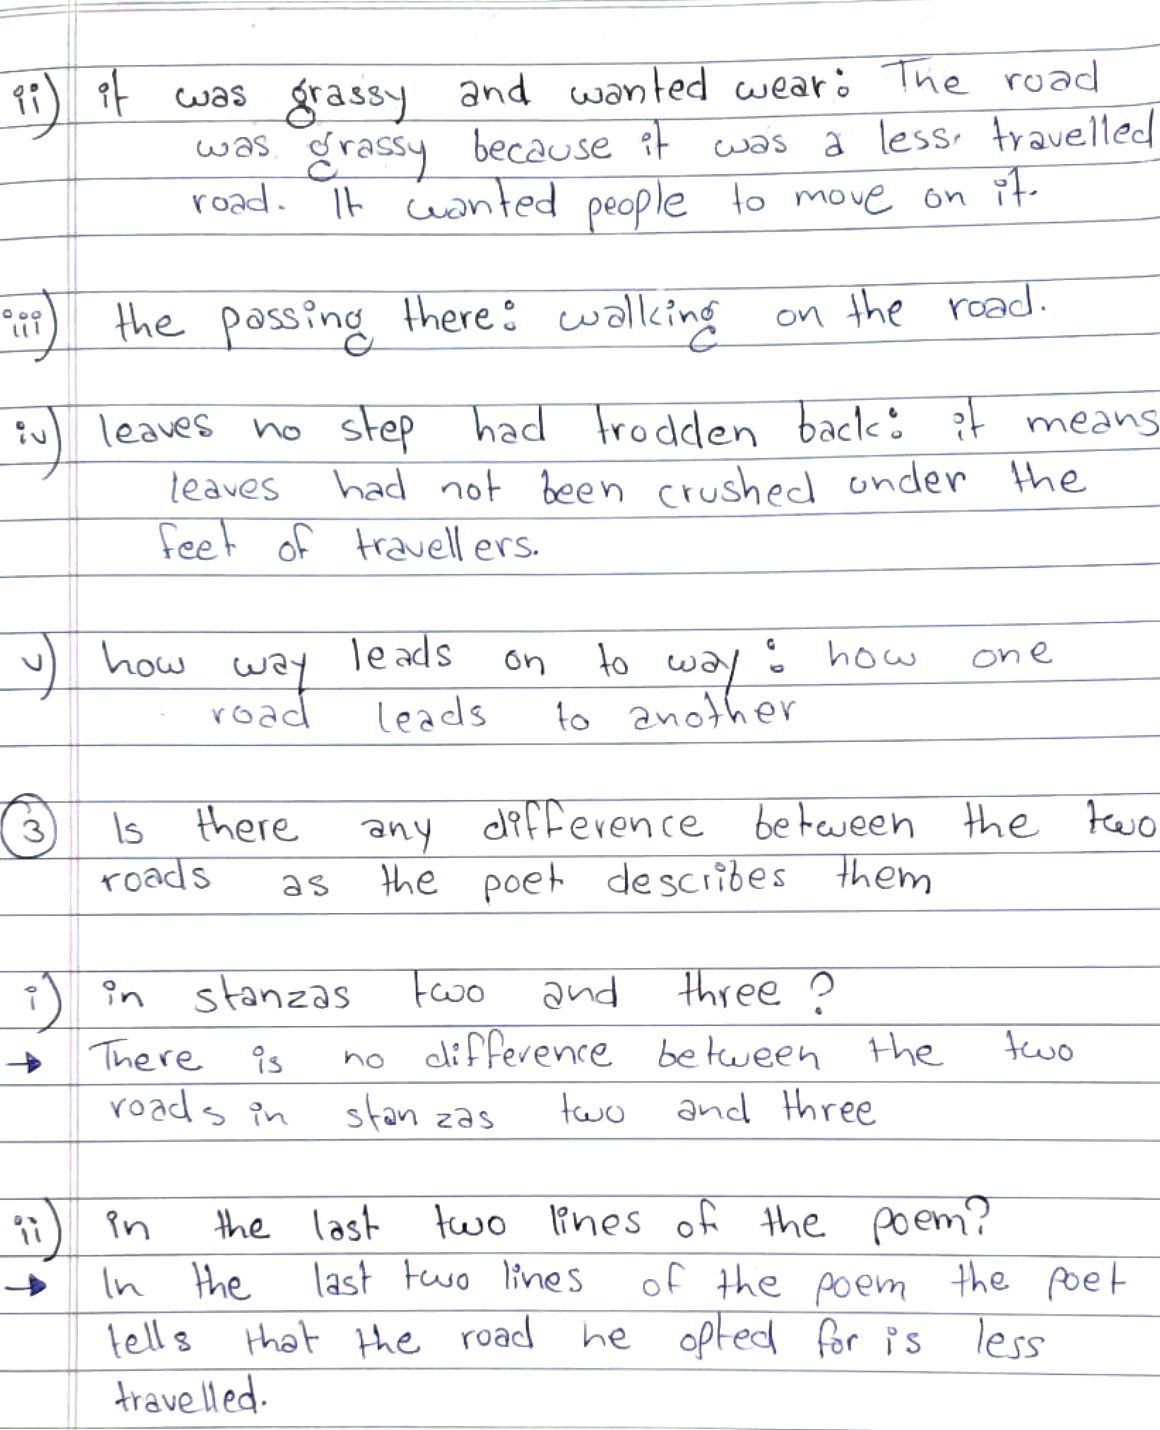 ii) it was grassy and wanted wear: The road
was grassy because it was a less travelled
road. It wanted people to move on it.
iii) the passing there: walking on the road.
iv) leaves no step had trodden back: it means
leaves had not been crushed under the
feet of travellers.
v) how way leads on to way: how one
road leads to another
3 Is there any difference between the two
roads as the poet describes them
i) in stanzas two and three?
→ There is no difference between the two
roads in stanzas two and three
ii) in the last two lines of the poem?
→ In the last two lines of the poem the poet
tells that the road he opted for is less
travelled.